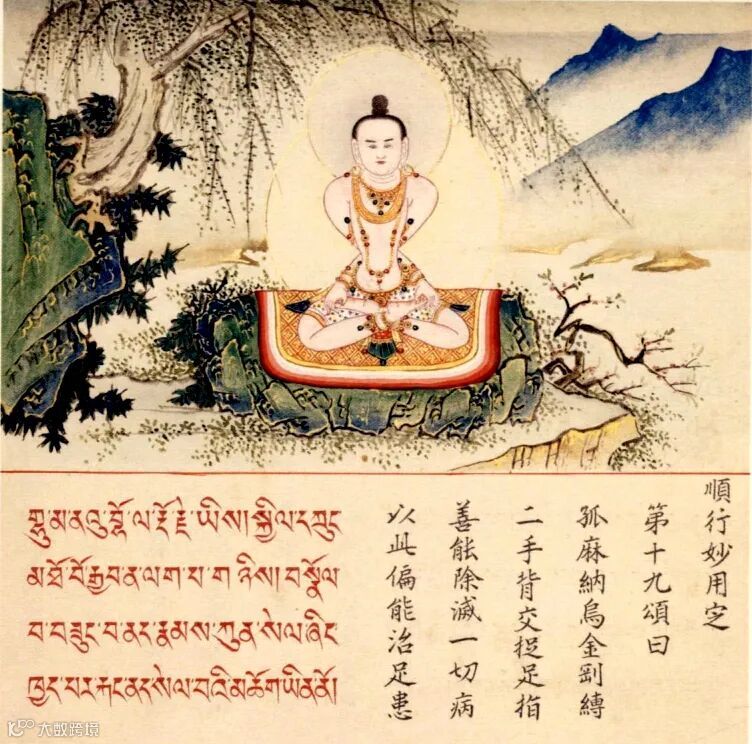 順行妙用定
第十九頌曰
孤麻納烏金剛縛
二手背交捉足指
善能除滅一切病
以此偏能治足患
མ་ནའུ་ལ་རྡོ་རྗེ་ཡིས། སྐྱིལ་དཀྲུང
བོ་རྒྱབ་ན་ལག་པ་གཉིས། བསྣོལ
བ་བཟུང་བ་ནད་རྣམས་ཀུན་སེལ་ཞིང
ཁྱད་པར་རྐང་ནད་སེལ་བའི་མཆོག་ཡིན་ནོ།
大数跨境